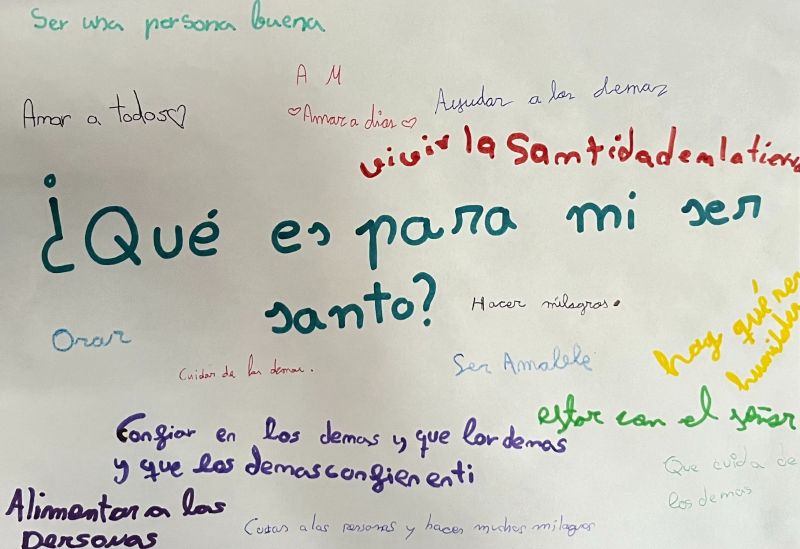 Ser una persona buena
A M
Amar a todos♡
♡Amar a dios♡
Ayudar a los demaz
vivir la santidad en la tierra
¿Qué es para mi ser
santo?
Hacer milagros.
Orar
hay qué ser
humildes
Cuidar de los demas.
Ser Amable
estar con el señor
Confiar en los demas y que los demas
y que los demas confien en ti
Que cuida de
los demas
Alimentar a las
personas
Curar a las personas y hacer muchos milagros